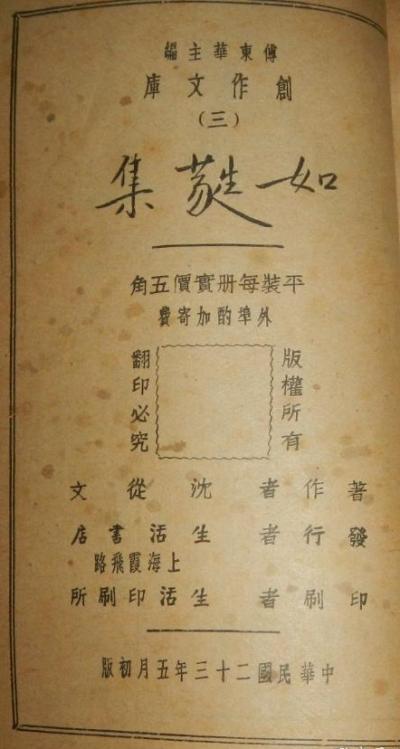 傅東華主編
創作文庫
(三)
如蕤集
平裝每册實價五角
外埠酌加寄費
版權所有
翻印必究
著作者 沈從文
發行者 生活書店
上海霞飛路
印刷者 生活印刷所
中華民國二十三年五月初版